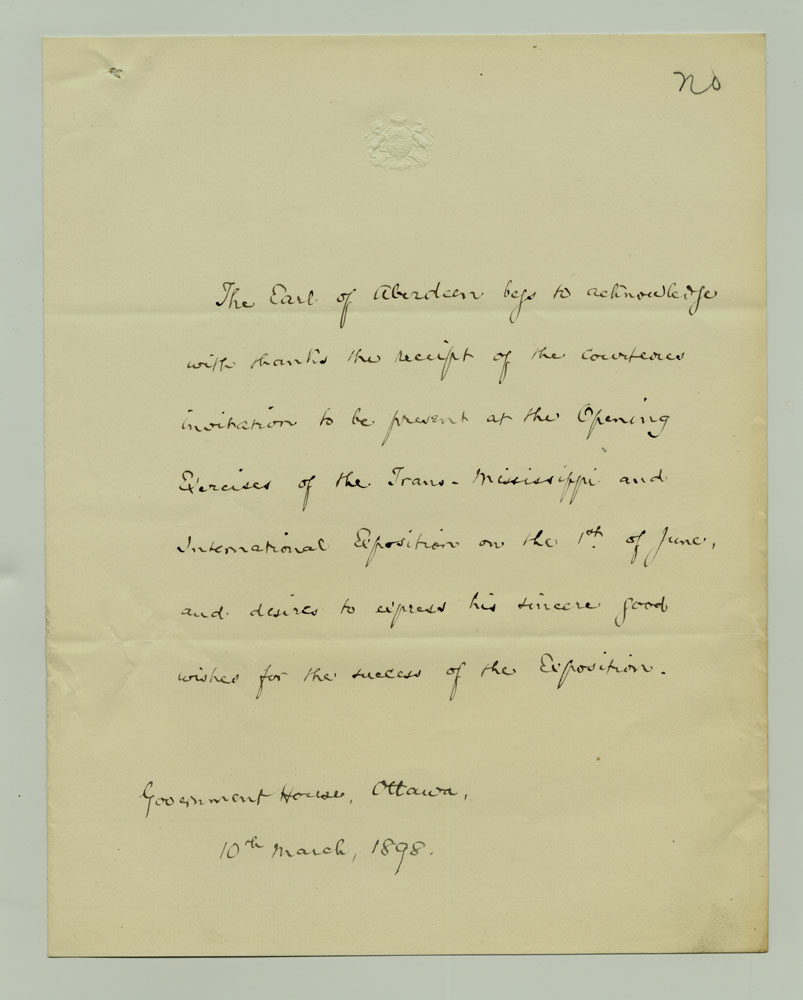 No
The Earl of Aberdeen begs to acknowledge
with thanks the receipt of the courteous
invitation to be present at the Opening
Exercises of the Trans-Mississippi and
International Exposition on the 1st. of June,
and desires to express his sincere good
wishes for the success of the Exposition.
Government House, Ottawa,
10th March, 1898.